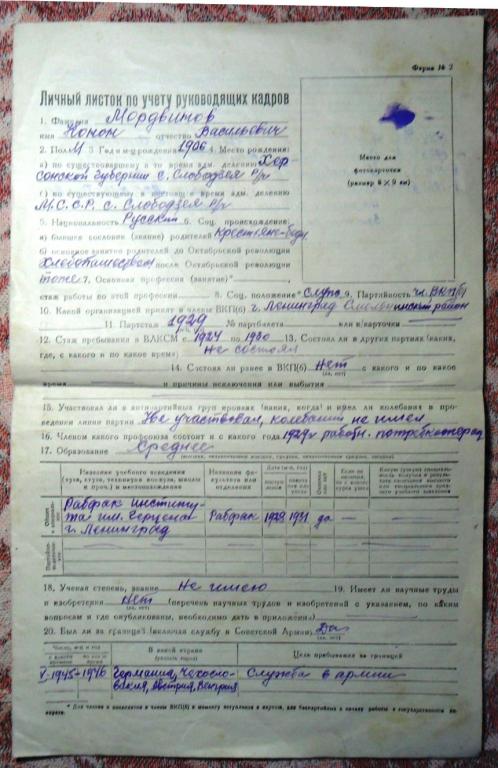 Форма № 2
Личный листок по учету руководящих кадров
1. Фамилия Мордвинов
имя Конон отчество Васильевич
2. Пол М. 3. Год и м. рождения 1906 4. Место рождения:
а) по существовавшему в то время адм. делению Хер-
сонской губернии с. Слободзея
б) по существующему в настоящее время адм. делению
М.С.С.Р. с. Слободзея
Место для
фотокарточки
(размер 8 × 9 см)
5. Национальность Русский 6. Соц. происхождение:
а) бывшее сословие (звание) родителей Крестьяне-бедн.
б) основное занятие родителей до Октябрьской революции
Хлебопашеством после Октябрьской революции
тоже 7. Основная профессия (занятие)*
стаж работы по этой профессии 8. Соц. положение* Служ. 9. Партийность чл. ВКП(б)
10. Какой организацией принят в члены ВКП(б) г. Ленинград Смольнинский район
11. Партстаж 1929 № партбилета или к/карточки
12. Стаж пребывания в ВЛКСМ с 1924 по 1930 13. Состоял ли в других партиях (каких,
где, с какого и по какое время) Не состоял
14. Состоял ли ранее в ВКП(б) Нет с какого и по какое
(да, нет)
время и причины исключения или выбытия
15. Участвовал ли в антипартийных группировках (каких, когда) и имел ли колебания в про-
ведении линии партии Не участвовал, колебаний не имел
16. Членом какого профсоюза состоит и с какого года 1929 г. рабочн. потребкооперац
17. Образование Среднее
Название учебного заведения
(вуза, втуза, техникума, школы
и проч.) и местонахождение
Название фа-
культета или
отделения
Рабфак институ-
та им. Герцена
г. Ленинград
Рабфак 1928 1931 да — —
18. Ученая степень, звание Не имею 19. Имеет ли научные труды
и изобретения Нет (перечень научных трудов и изобретений с указанием, по каким
(да, нет)
вопросам и где опубликованы, необходимо дать в приложении)
20. Был ли за границей (включая службу в Советской Армии) Да
(да, нет)
В какой стране
(указать город)
Цель пребывания за границей
V-1945-1946 Германия, Чехосло-
вакия, Австрия, Венгрия
Служба в армии